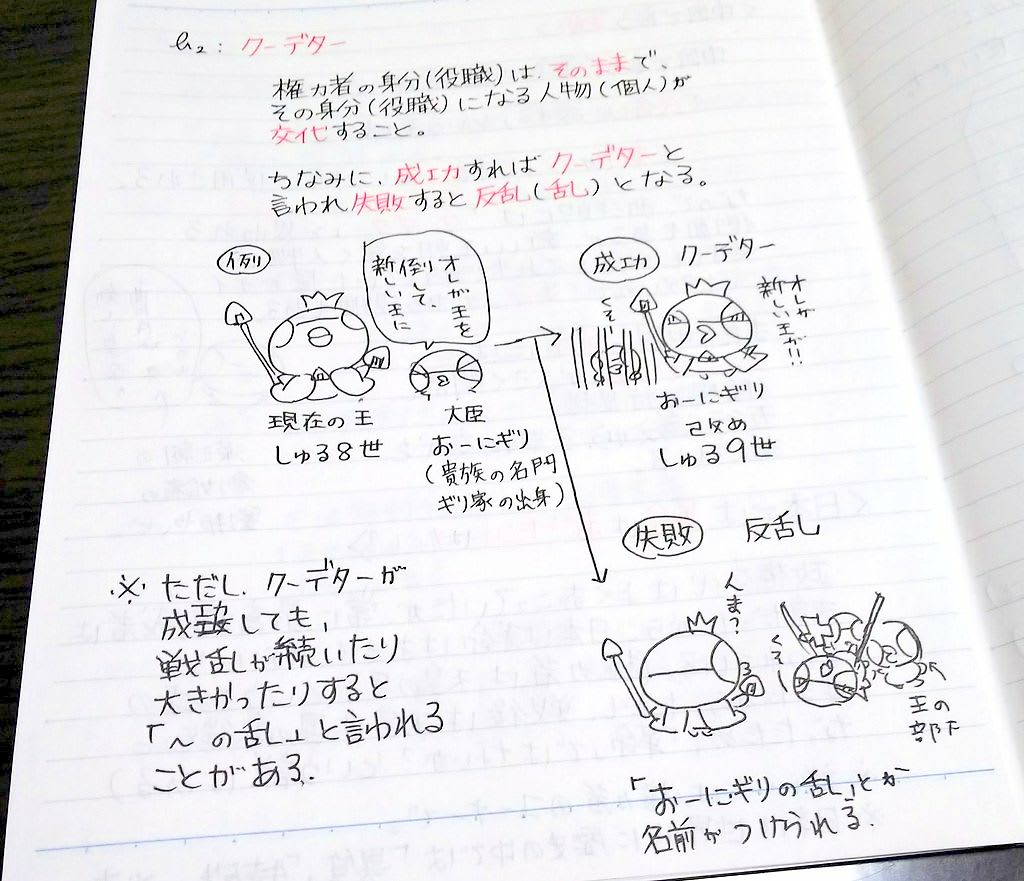 h2: クーデター
権力者の身分(役職)は、そのままで、
その身分(役職)になる人物(個人)が
交代すること。
ちなみに、成功すればクーデターと
言われ失敗すると反乱(乱し)となる。
例
オレが王を
倒して、
新しい王に
現在の王
しゅる8世
大臣
おーにギリ
(貴族の名門
ギリ家の出身)
成功 クーデター
くそー
オレが
新しい王だ!!
おーにギリ
改め
しゅる9世
失敗 反乱し
んま?
くそー
王の
部下
「おーにギリの乱」とか
名前がつけられる.
※ ただし、クーデターが
成功しても,
戦乱が続いたり
大きかったりすると
「~の乱」と言われる
ことがある.